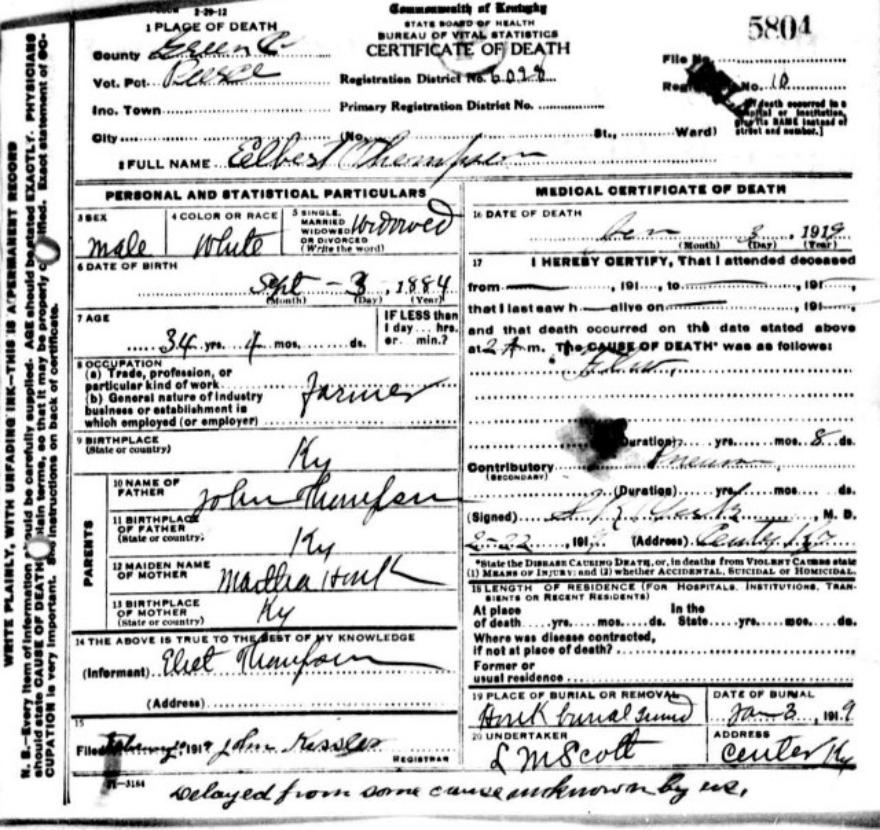 2-29-12
Commonwealth of Kentucky
STATE BOARD OF HEALTH
BUREAU OF VITAL STATISTICS
CERTIFICATE OF DEATH
5804
1 PLACE OF DEATH
County Green
Vot. Pct.
Inc. Town
City (No. St., Ward)
Registration District No. 6098
Primary Registration District No.
File No.
No. 10
[If death occurred in a
hospital or institution,
give its NAME instead of
street and number.]
2 FULL NAME Elbert Thompson
PERSONAL AND STATISTICAL PARTICULARS
3 SEX
male
4 COLOR OR RACE
White
5 SINGLE,
MARRIED
WIDOWED
OR DIVORCED
(Write the word)
Widowed
6 DATE OF BIRTH
Sept - 3, 1884
(Month) (Day) (Year)
7 AGE
34 yrs. 4 mos. ds.
IF LESS than
1 day... hrs.
or... min.?
8 OCCUPATION
(a) Trade, profession, or
particular kind of work
(b) General nature of industry
business or establishment in
which employed (or employer)
farmer
9 BIRTHPLACE
(State or country)
Ky
PARENTS
10 NAME OF
FATHER
John Thompson
11 BIRTHPLACE
OF FATHER
(State or country)
Ky
12 MAIDEN NAME
OF MOTHER
Martha Houk
13 BIRTHPLACE
OF MOTHER
(State or country)
Ky
14 THE ABOVE IS TRUE TO THE BEST OF MY KNOWLEDGE
(Informant) Thompson
(Address)
15
Filed 191 John Kessler
REGISTRAR
11-3184
MEDICAL CERTIFICATE OF DEATH
16 DATE OF DEATH
Jan 3, 1919
(Month) (Day) (Year)
17 I HEREBY CERTIFY, That I attended deceased
from , 191 , to , 191
that I last saw h alive on , 191
and that death occurred on the date stated above
at 2 A m. The CAUSE OF DEATH* was as follows:
Flu
(Duration) yrs. mos. 8 ds.
Contributory
(SECONDARY)
(Duration) yrs. mos. ds.
(Signed) , M. D.
2-22, 191 (Address)
*State the DISEASE CAUSING DEATH, or, in deaths from VIOLENT CAUSES state
(1) MEANS OF INJURY; and (2) whether ACCIDENTAL, SUICIDAL or HOMICIDAL.
18 LENGTH OF RESIDENCE (FOR HOSPITALS, INSTITUTIONS, TRAN-
SIENTS OR RECENT RESIDENTS)
At place In the
of death yrs. mos. ds. State yrs. mos. ds.
Where was disease contracted,
if not at place of death?
Former or
usual residence
19 PLACE OF BURIAL OR REMOVAL
Houk burial ground
DATE OF BURIAL
Jan 3, 1919
20 UNDERTAKER
L M Scott
ADDRESS
Center Ky
Delayed from some cause unknown by us.
WRITE PLAINLY, WITH UNFADING INK—THIS IS A PERMANENT RECORD
N. B.—Every item of information should be carefully supplied. AGE should be stated EXACTLY. PHYSICIANS
should state CAUSE OF DEATH in plain terms, so that it may be properly classified. Exact statement of OC-
CUPATION is very important. See instructions on back of certificate.